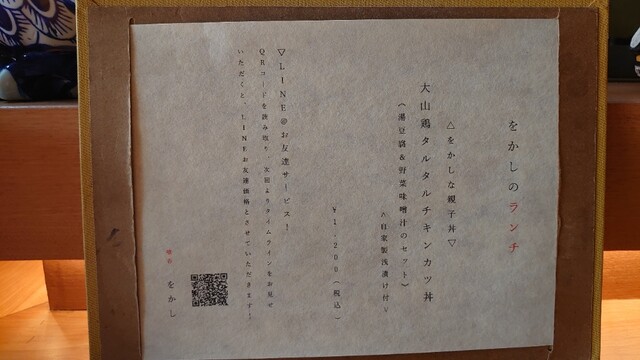 をかしのランチ
△をかしな親子丼▽
大山鶏タルタルチキンカツ丼
（湯豆腐＆野菜味噌汁のセット）
＜自家製浅漬け付＞
¥1,200（税込）
▽LINE@お友達サービス！
QRコードを読み取り、次回よりタイムラインをお見せ
いただくと、LINEお友達価格とさせていただきます！
をかし